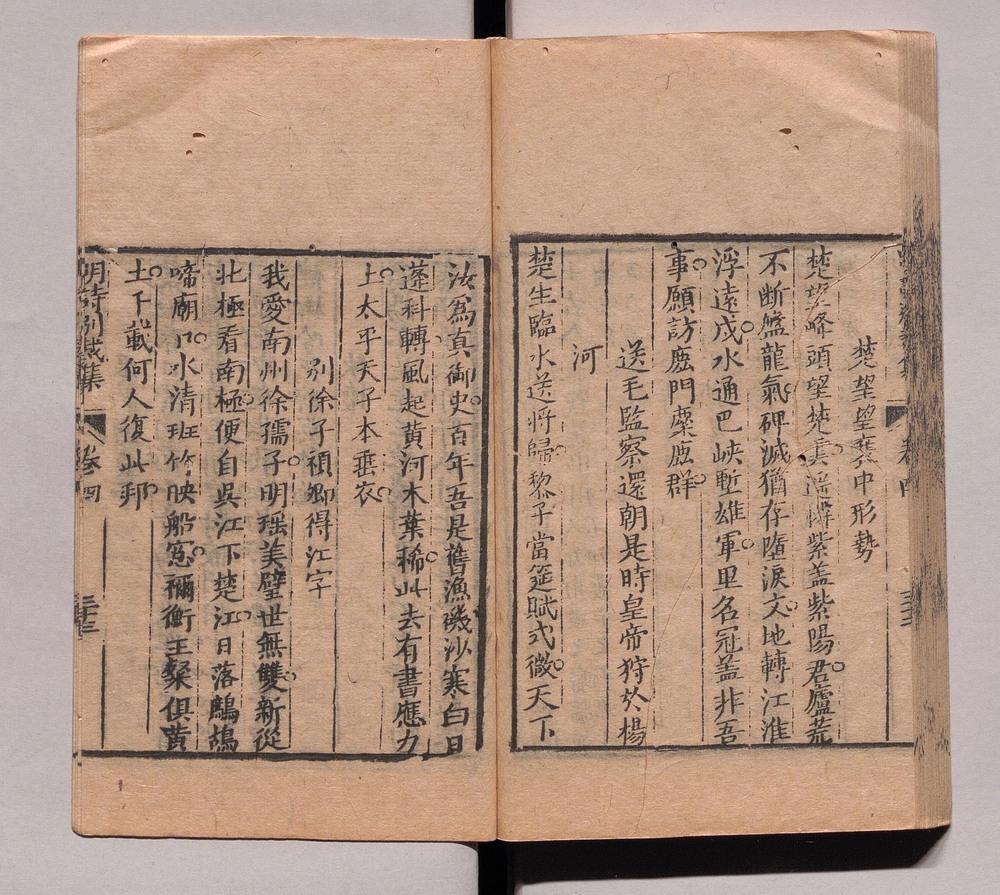 楚望望襄中形勢
楚望峰頭望楚雲遙憐紫蓋紫陽君廬荒
不斷盤龍氣碑滅猶存墮淚文地轉江淮
浮遠戍水通巴峽塹雄軍里名冠盖非吾
事願訪鹿門麋鹿群
送毛監察還朝是時皇帝狩於楊
河
楚生臨水送將歸黎子當筵賦式微天下
汝為真御史百年吾是舊漁磯沙寒白日
蓬科轉風起黃河木葉稀此去有書應力
上太平天子本垂衣
別徐子禎卿得江字
我愛南州徐孺子明瑶美璧世無雙新從
北極看南極便自吳江下楚江日落鷓鴣
啼廟口水清班竹映船窓禰衡王粲俱黃
土千載何人復此邦
明詩別裁集
卷四
二十三